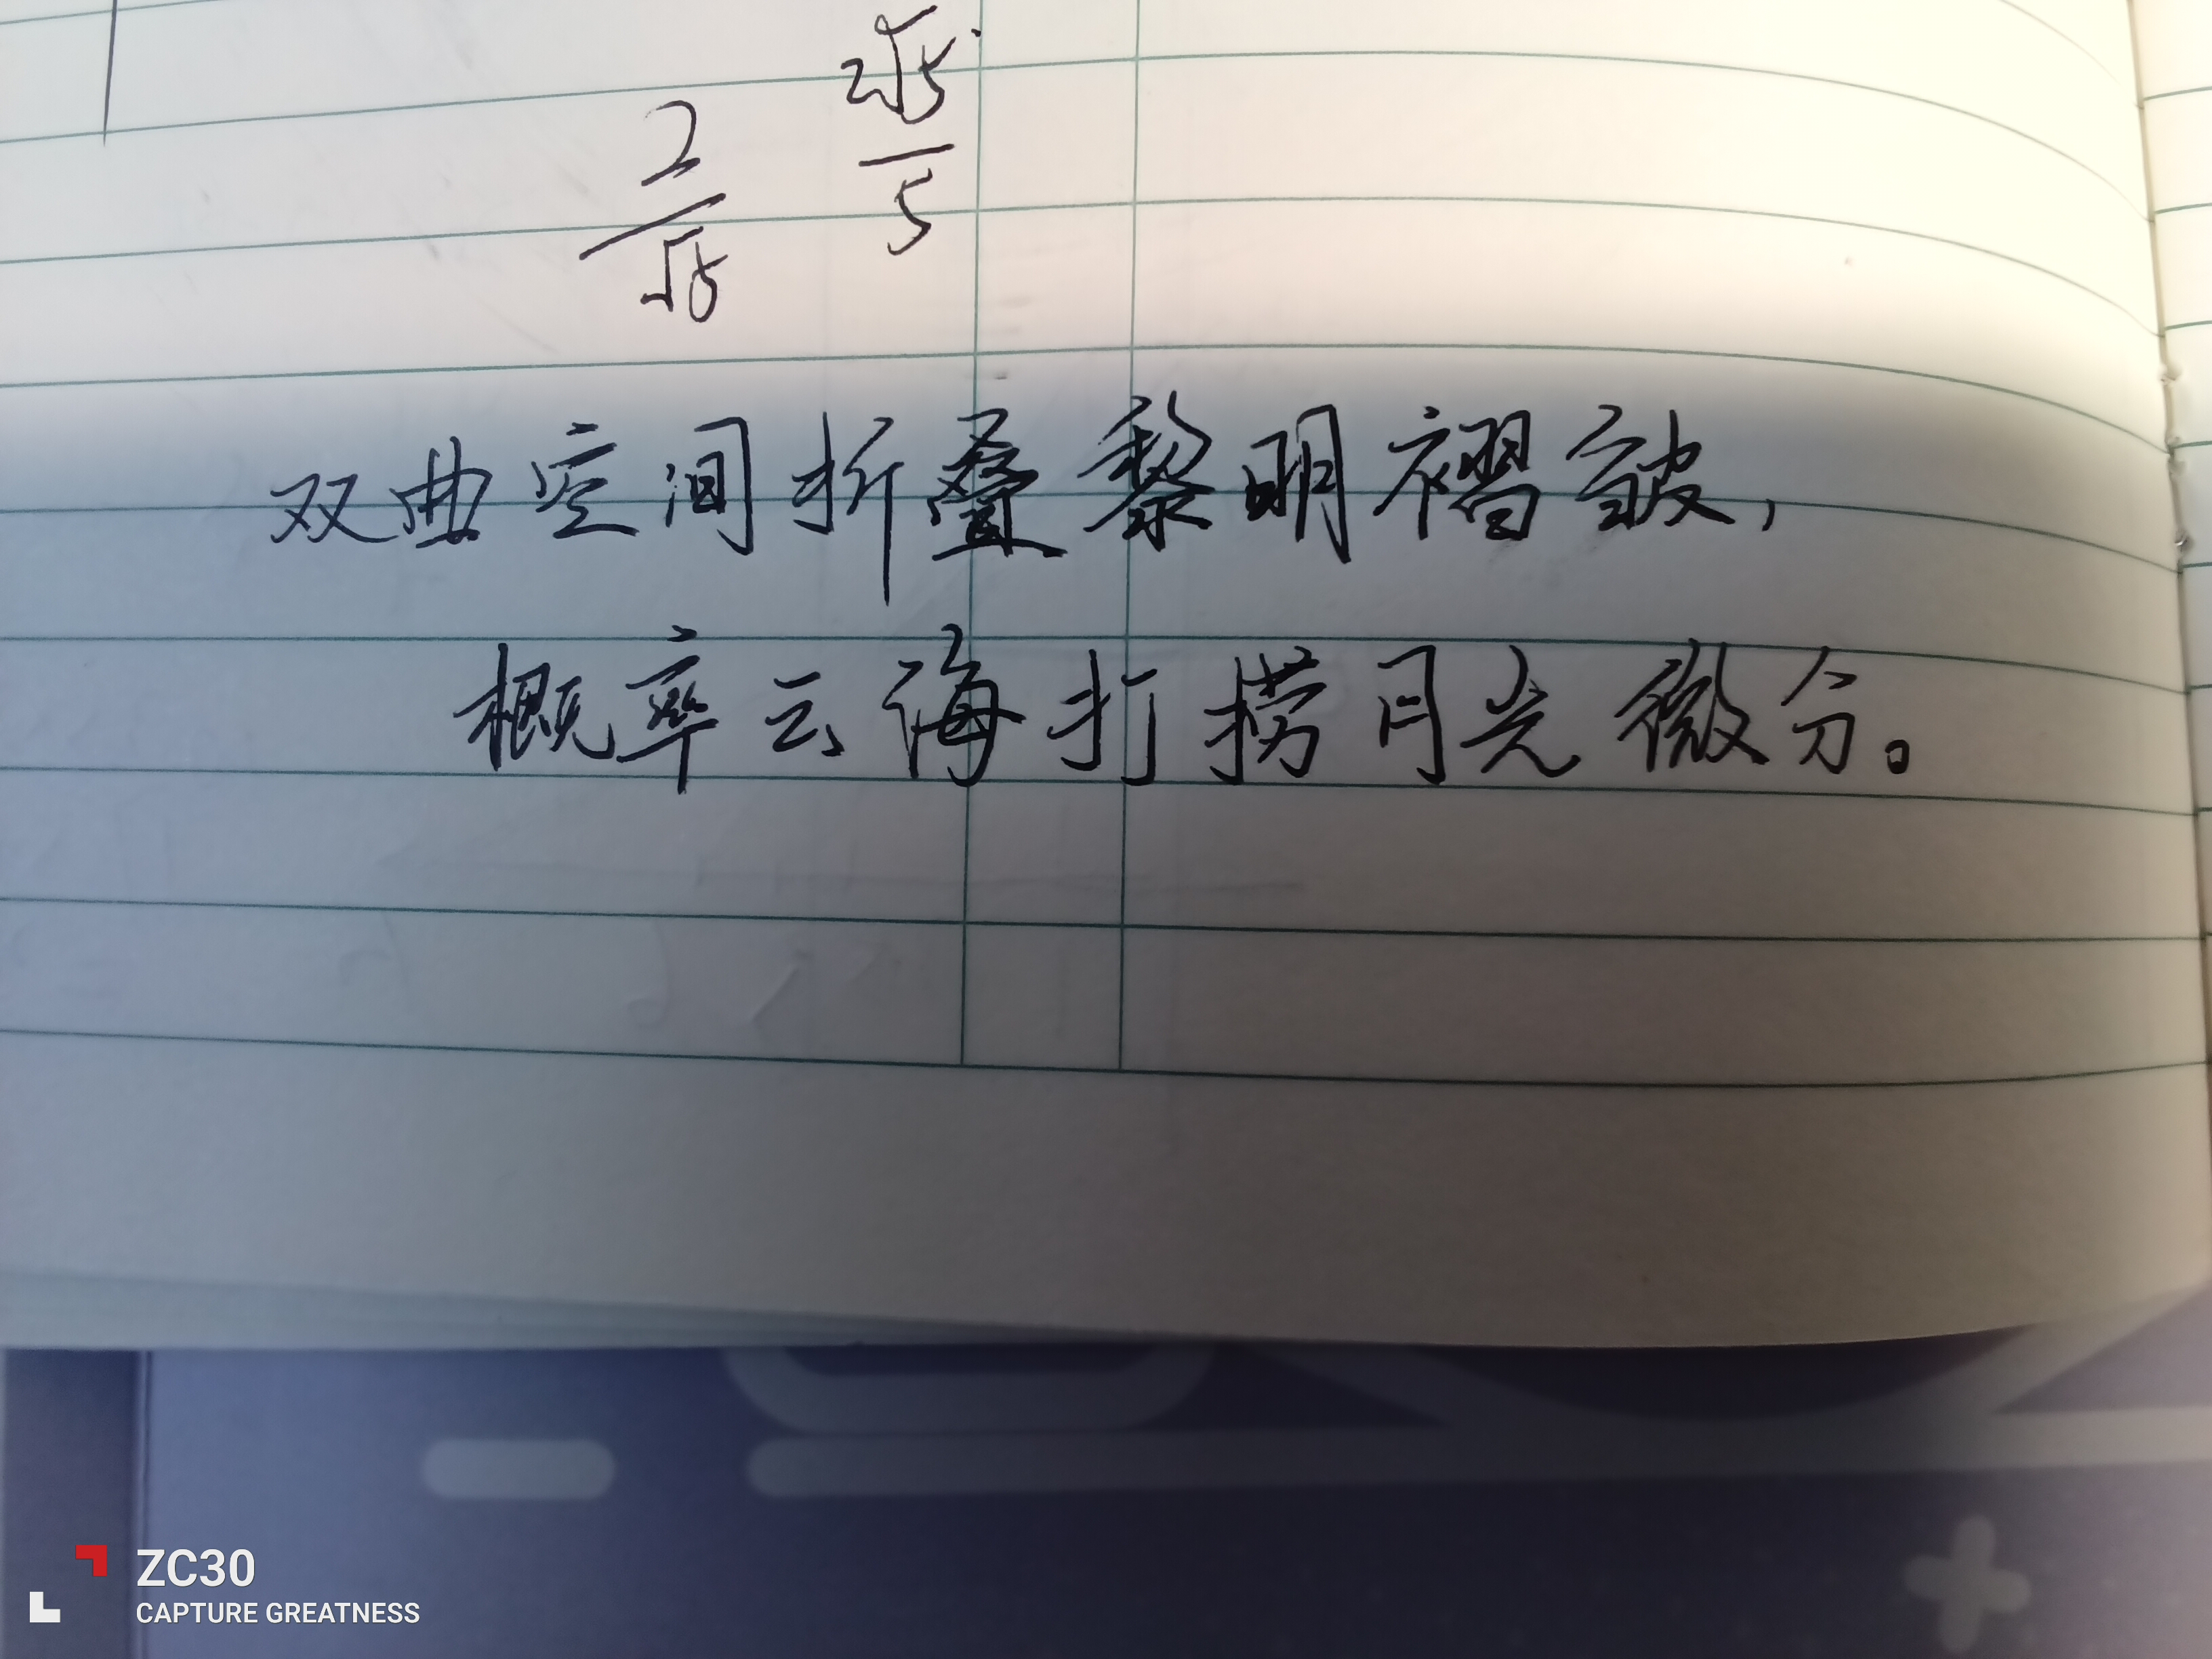 2√5
5
2
√5
双曲空间折叠黎明褶皱,
概率云海打捞月光微分。
ZC30
CAPTURE GREATNESS